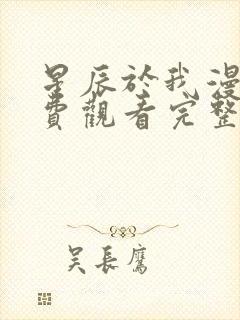 星辰於我漫
費觀看完整
吴長鷹